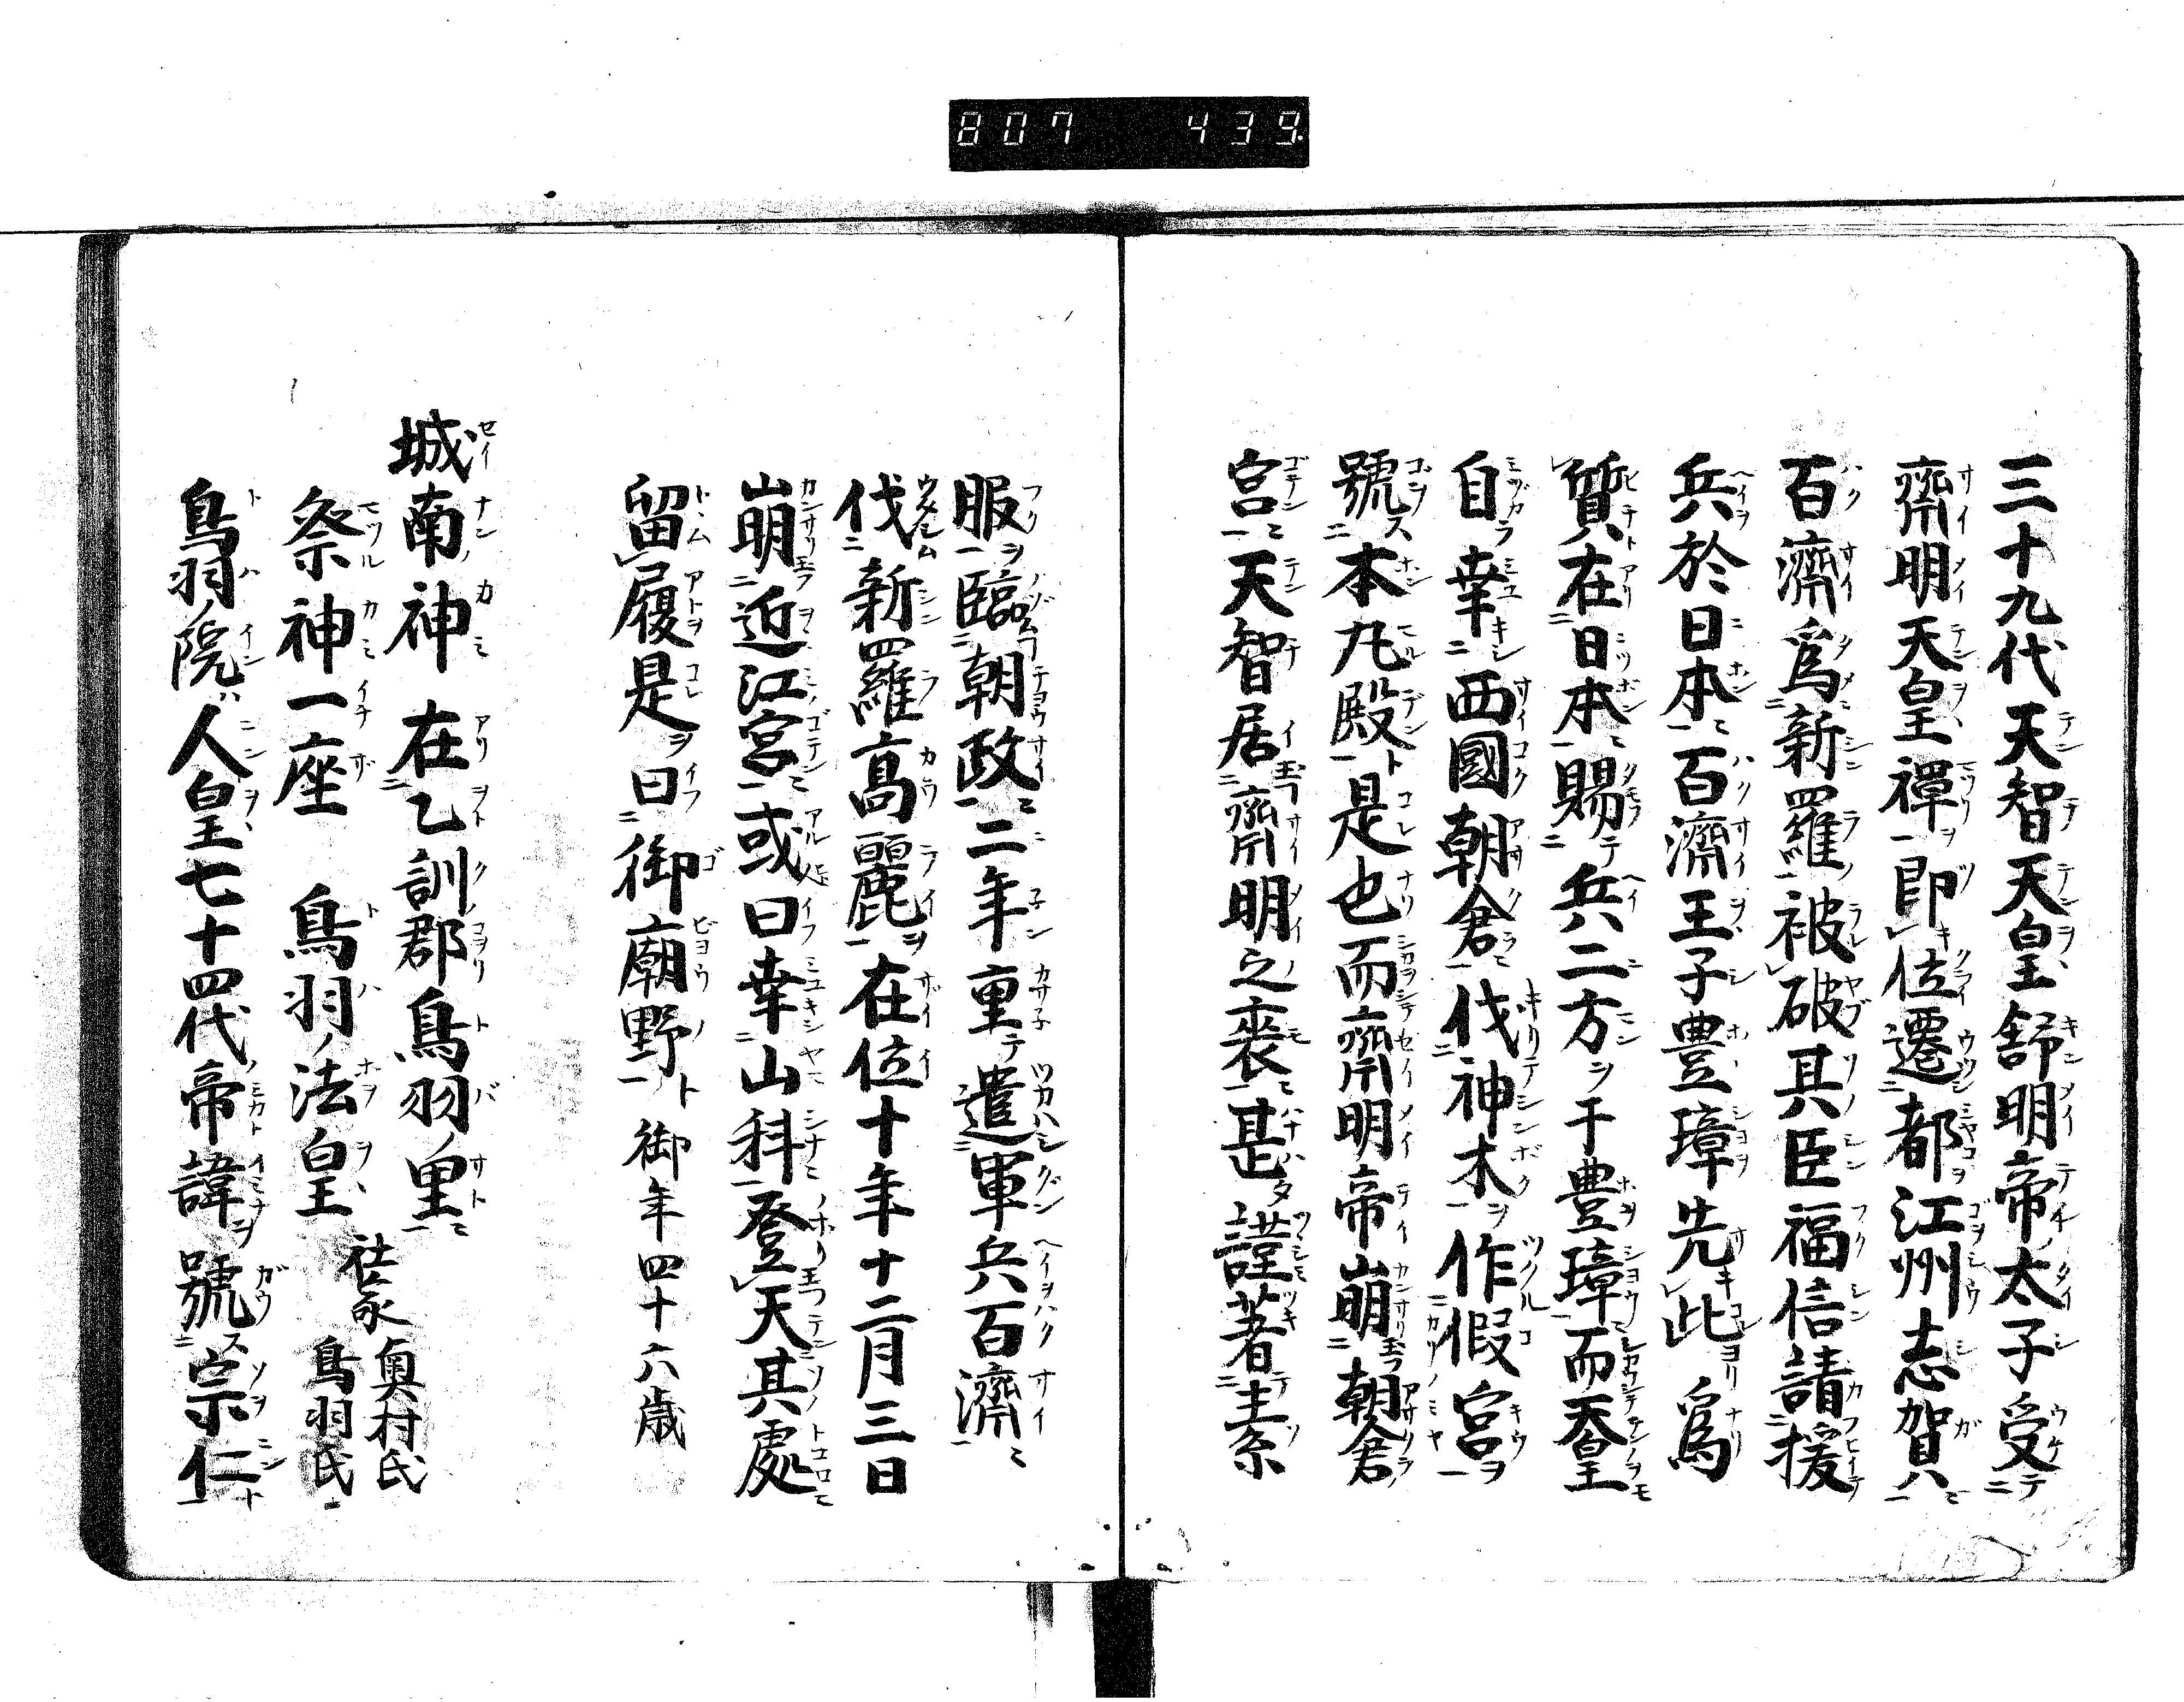 807 439
三十九代天智天皇舒明帝太子受
齊明天皇禪即位遷都江州志賀
百濟爲新羅被破其臣福信請援
兵於日本百濟王子豊璋先此爲
質在日本賜兵二万于豊璋而天皇
自幸西國朝倉伐神木作假宮
號木丸殿是也而齊明帝崩朝倉
宮天智居齊明之喪甚謹著素
服臨朝政二年重遣軍兵百濟
伐新羅高麗在位十年十二月三日
崩近江宮或曰幸山科登天其處
留履是曰御廟野御年四十六歳
城南神在乙訓郡鳥羽里
祭神一座 鳥羽ノ法皇 社家 奥村氏 鳥羽氏
鳥羽ノ院ハ人皇七十四代帝諱號宗仁